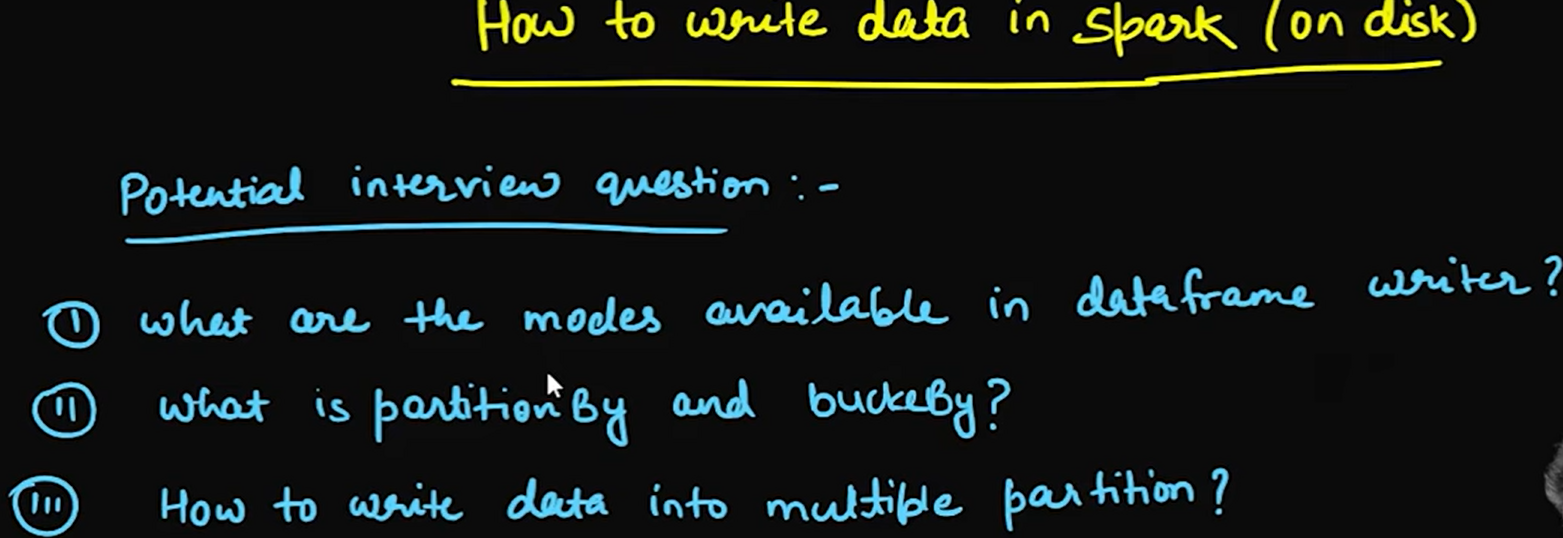 How to write data in spark (on disk)
Potential interview question :-
(I) what are the modes available in dataframe writer?
(II) what is partitionBy and buckeBy?
(III) How to write data into multiple partition?